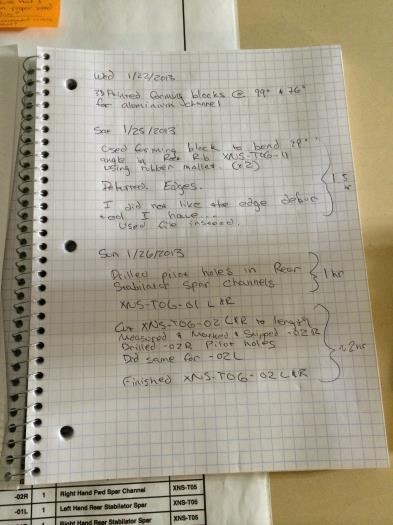 Wed 1/22/2013
3D Printed forming blocks @ 99° & 76°
for aluminium channel
Sat 1/25/2013
Used forming block to bend
angle in Rib XNS-T06-11
using rubber mallet. (x2)
Deburred. Edges.
I did not like the edge debur
tool I have...
Used file instead.
1.5
hr
Sun 1/26/2013
Drilled pilot holes in Rear
Stabilator Spar Channels
XNS-T06-01 L&R
1 hr
Cut XNS-T06-02 L&R to length
Measured & Marked & Snipped -02R
Drilled -02R Pilot holes
Did same for -02L
Finished XNS-T06-02 L&R
~2hr
-02R 1 Right Hand Fwd Spar Channel XNS-T05
-01L 1 Left Hand Rear Stabilator Spar XNS-T05
1 Right Hand Rear Stabilator Spar XNS-T05